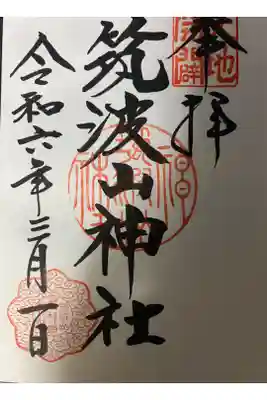 奉拝
筑波山神社
令和六年三月一日